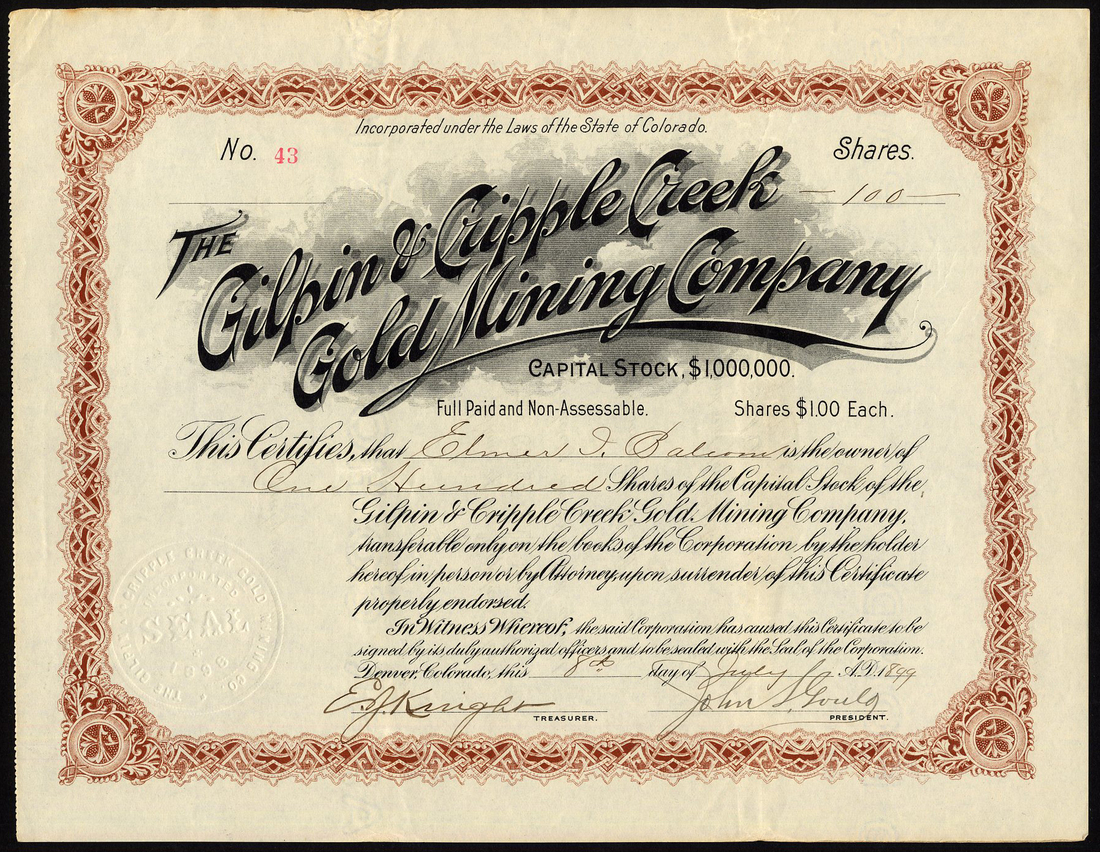 Incorporated under the Laws of the State of Colorado.
No. 43
Shares.
100
THE
Gilpin & Cripple Creek
Gold Mining Company
CAPITAL STOCK, $1,000,000.
Full Paid and Non-Assessable. Shares $1.00 Each.
This Certifies, that Elmer I. Balcom is the owner of
One Hundred Shares of the Capital Stock of the
Gilpin & Cripple Creek Gold Mining Company,
transferable only on the books of the Corporation by the holder
hereof in person or by Attorney upon surrender of this Certificate
properly endorsed.
In Witness Whereof, the said Corporation has caused this Certificate to be
signed by its duly authorized officers and to be sealed with the Seal of the Corporation.
Denver, Colorado, this 8th day of July A.D. 1899
E.J. Knight
TREASURER.
John S. Gould
PRESIDENT.
THE GILPIN & CRIPPLE CREEK GOLD MINING CO.
INCORPORATED
SEAL
1898